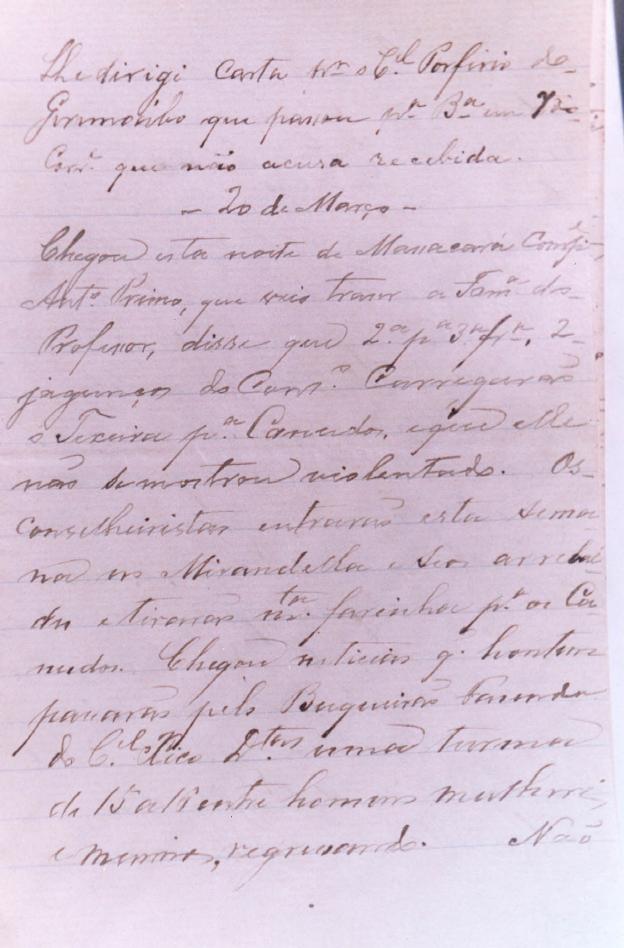 lhe dirigi carta pr. o C.el Porfirio de
que passou pa. Ba. em
Corr. que não acusa recebida.
- 20 de Março -
Chegou esta noite de Massacará
Anto. Primo, que veio trazer a Fama. do
Professor, disse que 2.a pa. 3.a fra., 2
jagunços do Conso. carregarão
o Texeira pa. Canudos, e que elle
não se mostrou violentado. Os
conselheiristas entrarão esta sema-
na em Mirandella e seos arrebal-
des e tirarão mta. farinha pa. os Ca-
nudos. Chegou noticias q. hontem
passarão pelo Buqueirão Fazenda
do C.el 2.tas uma turma
de 15 a 18 entre homens mulheres,
e meninos, regressando. Não